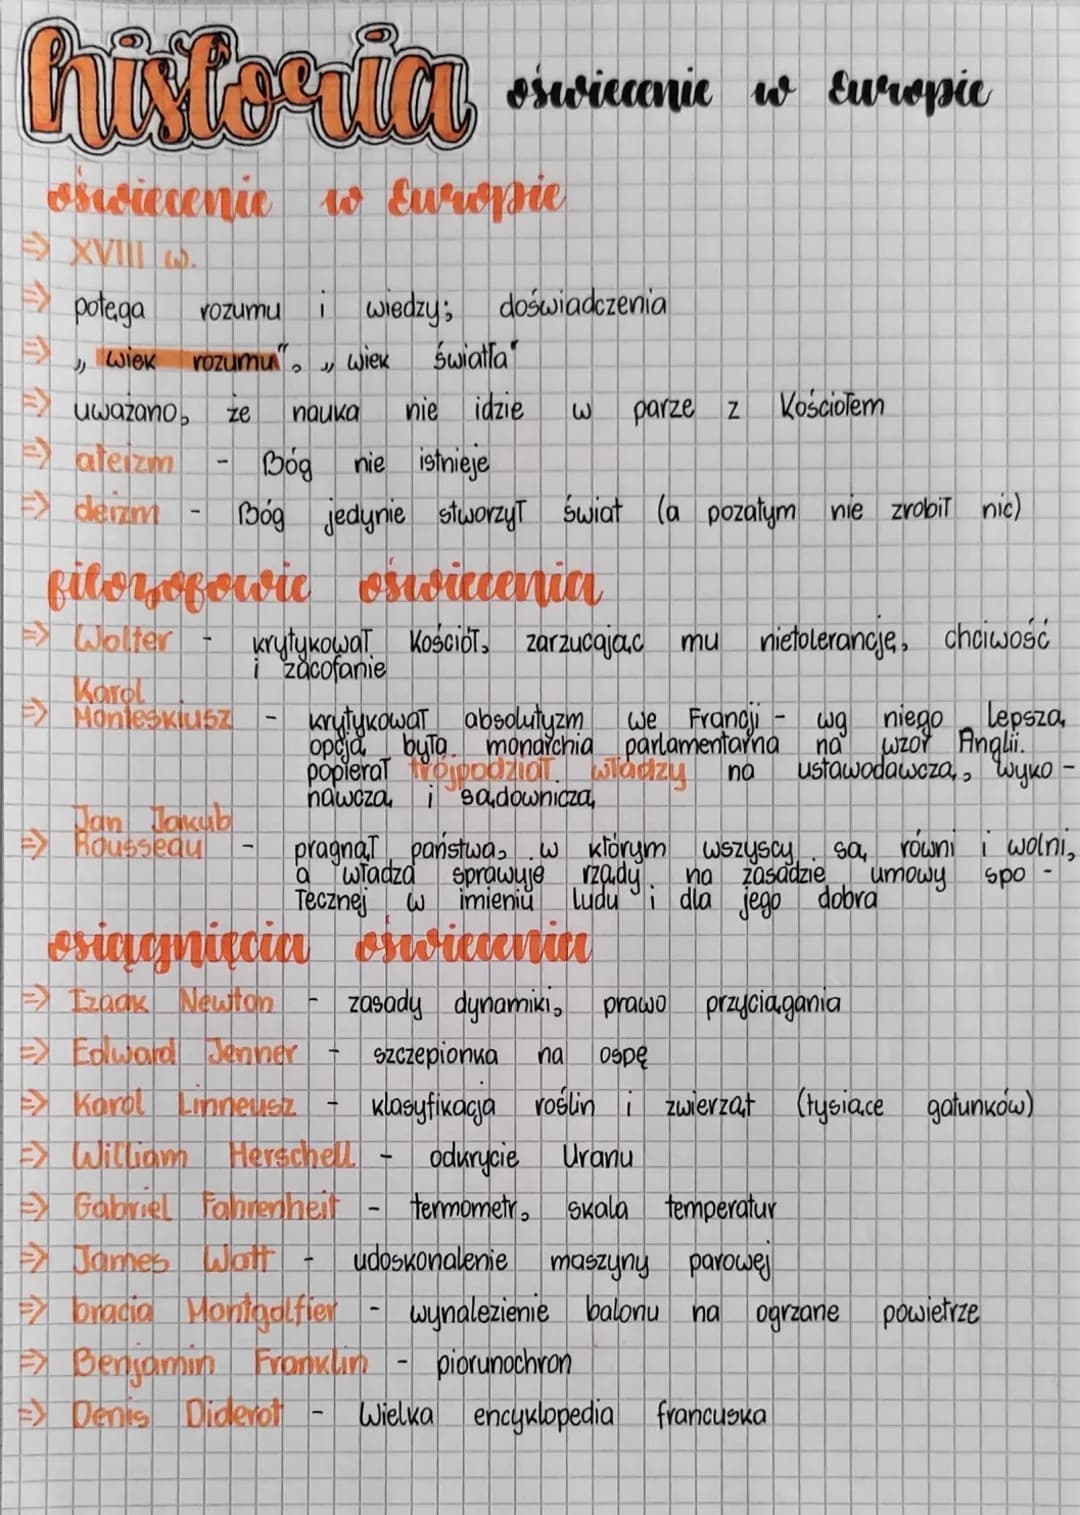 historia oświecenie w Europie
oświecenie w Europie
=> XVIII w.
=> potęga rozumu i wiedzy; doświadczenia
=> „wiek rozumu", „wiek światła"
=> uważano, że nauka nie idzie w parze z Kościołem
=> ateizm - Bóg nie istnieje
=> deizm - Bóg jedynie stworzył świat (a pozatym nie zrobił nic)
filozofowie oświecenia
=> Wolter - krytykował Kościół, zarzucając mu nietolerancję, chciwość
i zacofanie
Karol
=> Monteskiusz - krytykował absolutyzm we Francji - wg niego lepszą
opcją była monarchia parlamentarna na wzór Anglii.
popierał trójpodział władzy na ustawodawczą, wyko-
nawczą i sądowniczą
Jan Jakub
=> Rousseau - pragnął państwa, w którym wszyscy są równi i wolni,
a władza sprawuje rządy na zasadzie umowy spo-
łecznej w imieniu ludu i dla jego dobra
osiągnięcia oświecenia
=> Izaak Newton - zasady dynamiki, prawo przyciągania
=> Edward Jenner - szczepionka na ospę
=> Karol Linneusz - klasyfikacja roślin i zwierząt (tysiące gatunków)
=> William Herschell - odkrycie Uranu
=> Gabriel Fahrenheit - termometr, skala temperatur
=> James Watt - udoskonalenie maszyny parowej
=> bracia Montgolfier - wynalezienie balonu na ogrzane powietrze
=> Benjamin Franklin - piorunochron
=> Denis Diderot - Wielka encyklopedia francuska